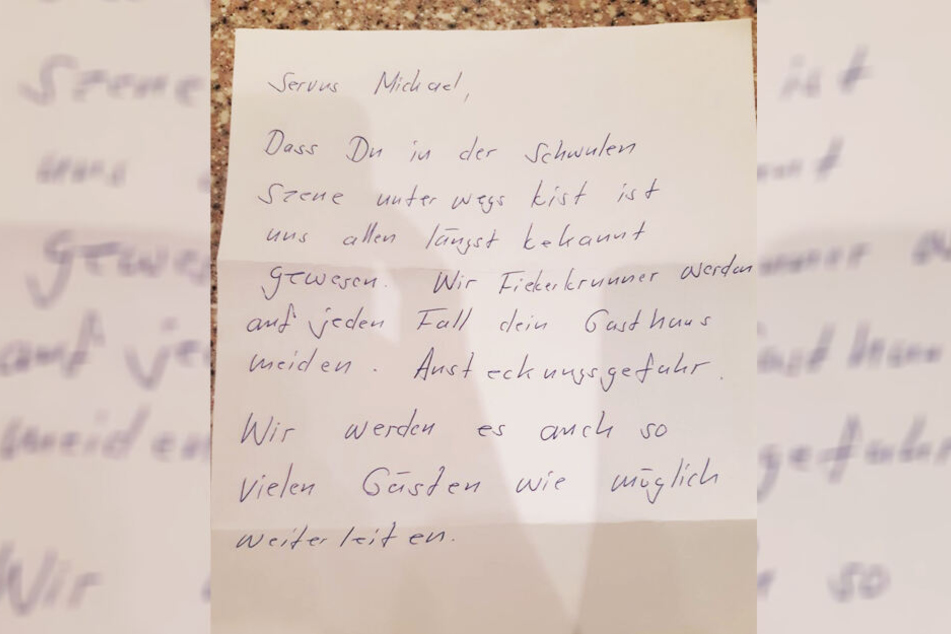 Servus Michael,
Dass Du in der Schwulen
Szene unterwegs bist ist
uns allen längst bekannt
gewesen. Wir Fiekerbrunner werden
auf jeden Fall dein Gasthaus
meiden. Ansteckungsgefahr.
Wir werden es auch so
vielen Gästen wie möglich
weiterleiten.